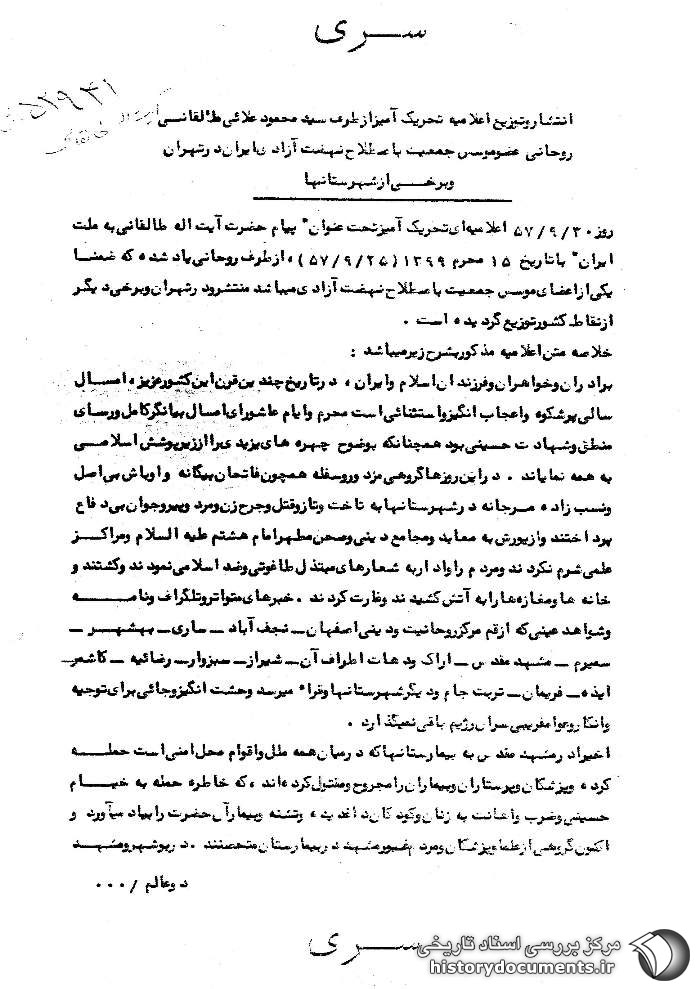 ســری
۵۲۹۳۱
انتشار و توزیع اعلامیه تحریک آمیز از طرف سید محمود علائی طالقانــی
روحانی عضو موسس جمعیت باصطلاح نهضت آزادی ایران در تهران
و برخــی از شهرستانها
روز ۵۷/۹/۳۰ اعلامیه‌ای تحریک آمیز تحت عنوان " پیام حضرت آیت اله طالقانی به ملت
ایران " با تاریخ ۱۵ محرم ۱۳۹۹ (۵۷/۹/۲۵) ، از طرف روحانی یاد شده که ضمنـا
یکی از اعضای موسس جمعیت باصطلاح نهضت آزادی میباشد منتشر و در تهران و برخی دیگر
از نقاط کشور توزیع گردیده است .
خلاصه متن اعلامیه مذکور بشرح زیر میباشد :
برادران و خواهران و فرزندان اسلام و ایران ، در تاریخ چندین قرن این کشور عزیز ، امسـال
سالی پرشکوه و اعجاب انگیز و استثنائی است محرم و ایام عاشورای امسال بیانگر کامل و رسای
منطق و شهادت حسینی بود همچنانکه بوضوح چهره های یزیدی را از زیر پوشش اسلامــی
به همه نمایاند . در این روزها گروهی مزد ور و سفله همچون فاتحان بیگانه و اوباش بی اصل
و نسب زاده مــرجانه در شهرستانها به تاخت و تاز و قتل و جرح زن و مرد و پیر و جوان بی دفاع
پرداختند و از یورش به معابد و مجامع دینی و صحن مطهر امام هشتم علیه السلام و مراکــز
علمی شرم نکردند و مردم را وادار به شعارهای مبتذل طاغوتی و ضد اسلامی نمودند و کشتند و
خانه ها و مغازه ها را به آتش کشیدند و غارت کردند . خبرهای متواتر و تلگراف و نامـــه
و شواهد عینی که از قم مرکز روحانیت و دینی اصفهان ــ نجف آباد ــ ساری ــ بهشهــر ــ
سمیرم ــ مشهد مقدس ــ اراک و دهات اطراف آن ــ شیراز ــ سبزوار ــ رضائیه ــ کاشمر
ایذه ــ فریمان ــ تربت جام و دیگر شهرستانها و قراء میرسد وحشت انگیز و جائی برای توجیه
و انکار و عوامفریبی سران رژیم باقی نمیگذارد .
اخیرا در مشهد مقدس به بیمارستانها که در میان همه ملل و اقوام محل امنی است حملـــه
کرده و پزشکان و پرستاران و بیماران را مجروح و مقتول کرده‌اند ، که خاطره حمله به خیــام
حسینی و ضرب و اهانت به زنان و کودکان داغدیده و تشنه و بیمار آل حضرت را بیاد میآورد و
اکنون گروهی از علما و پزشکان و مردم غیور مشهد در بیمارستان متحصنند . در بوشهر و مشهـد
دو عالم /...
ســری
مرکز بررسی اسناد تاریخی
historydocuments.ir